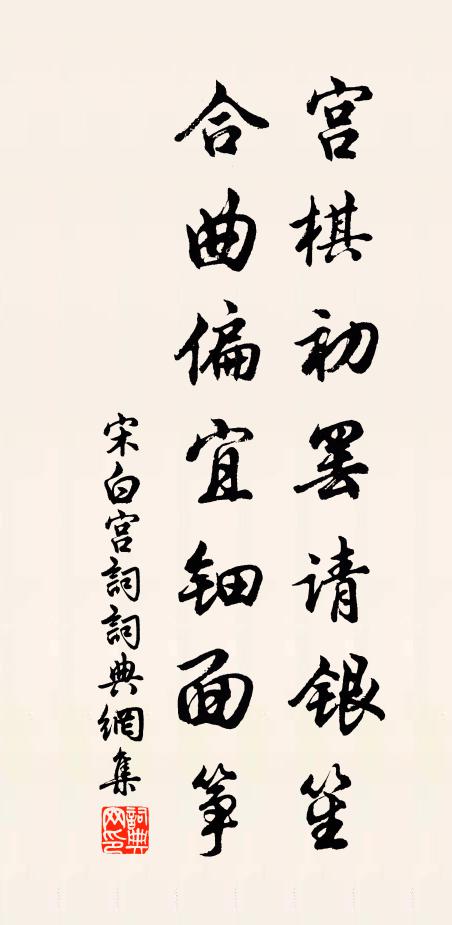 宫棋初罢请银笙
合曲偏宜钿面筝
宋白宫詞詞典網集
詞典网印